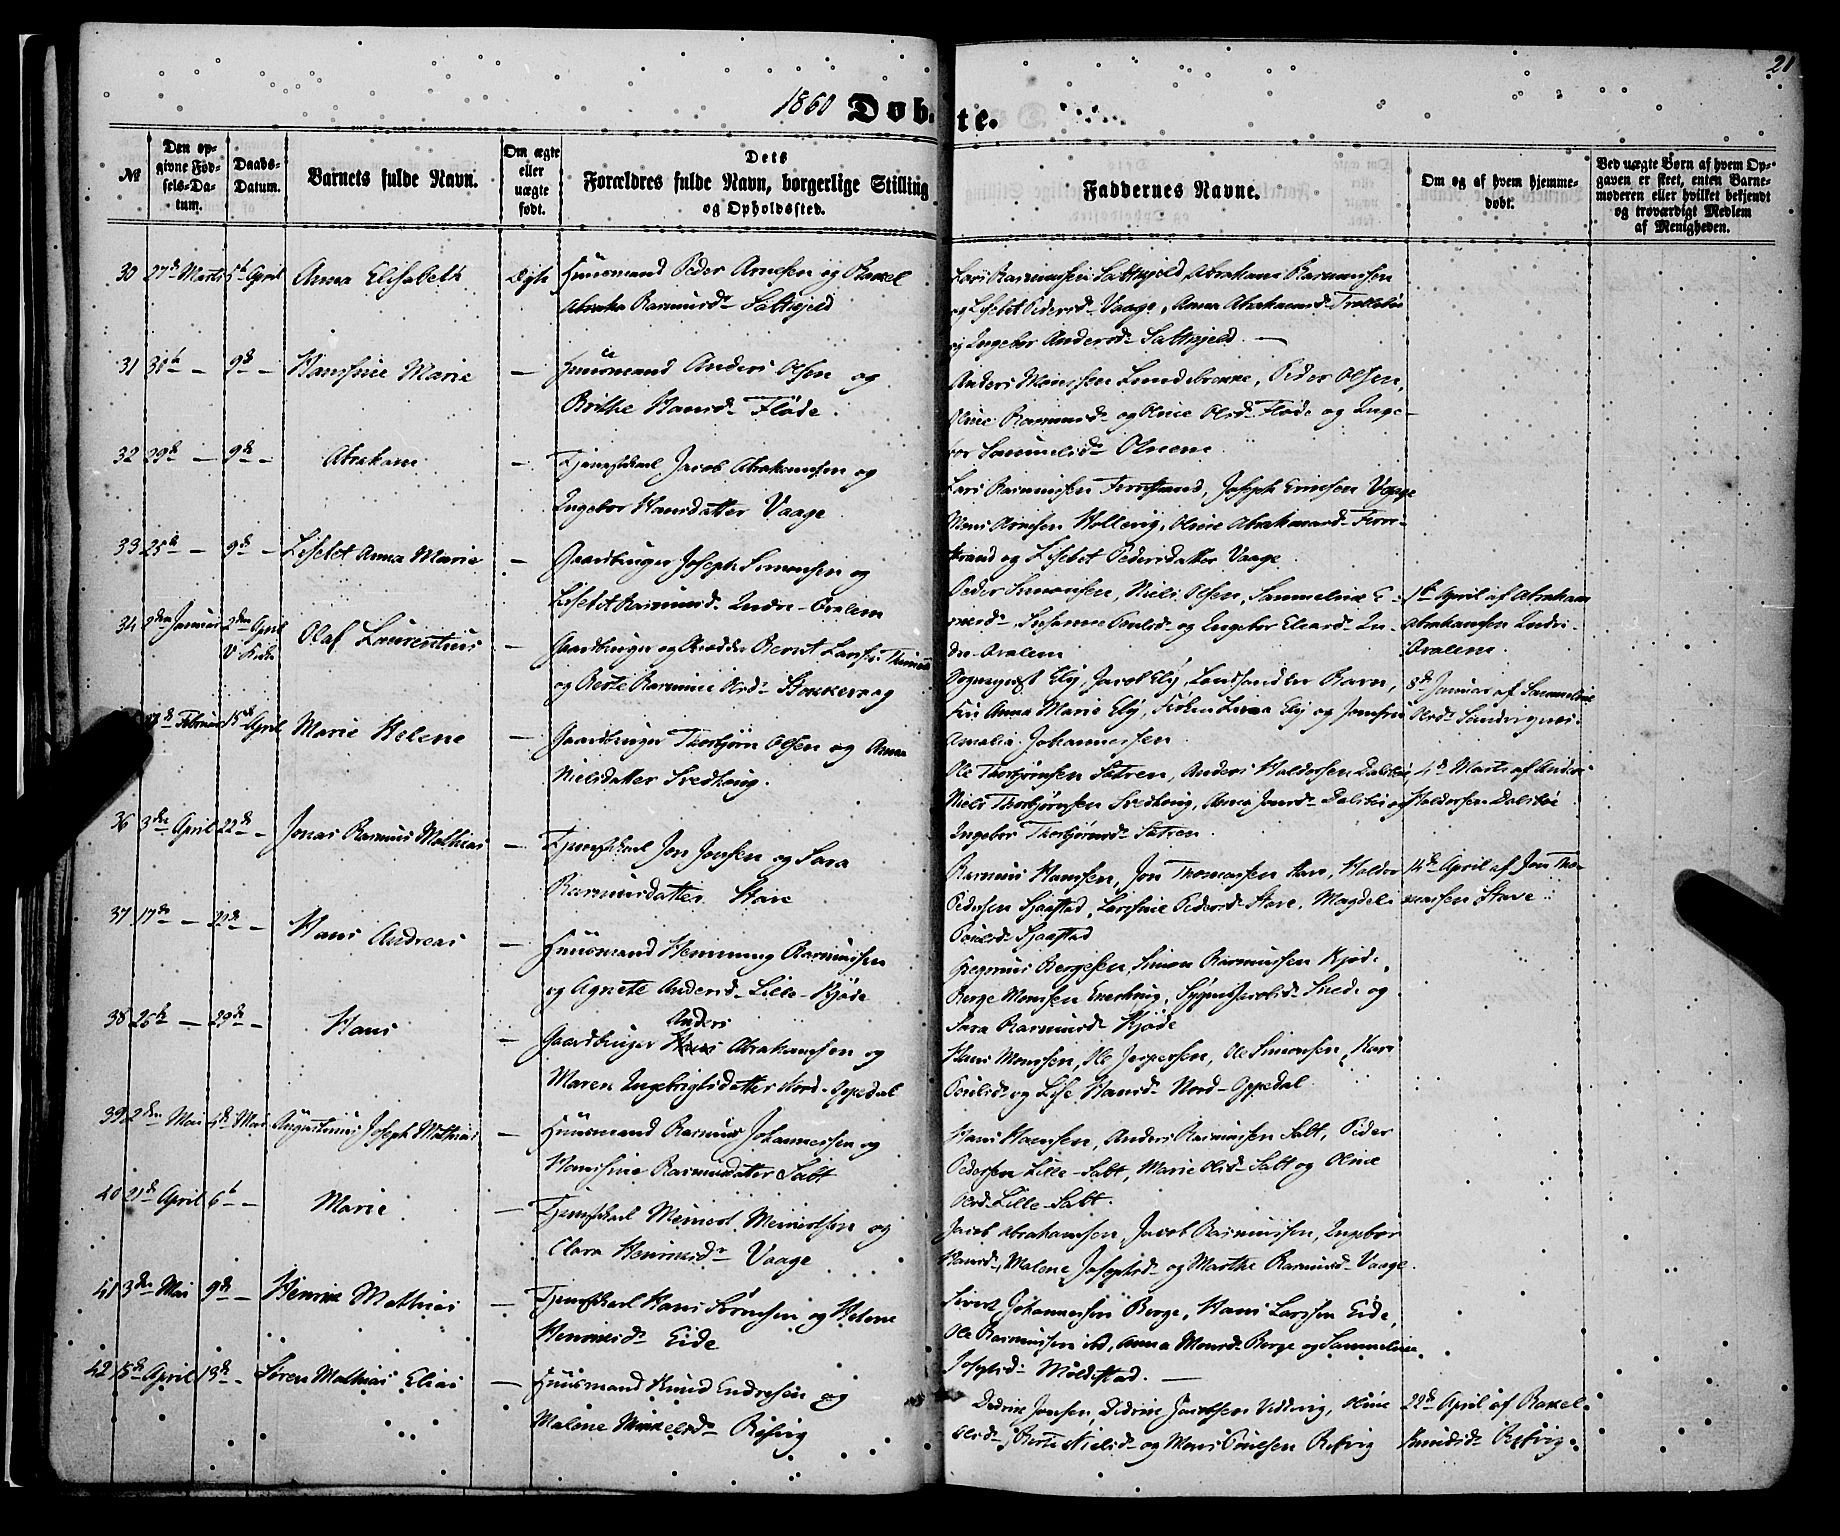 21
1860 Døbte.
№
Den opgivne Fødsels-Datum.
Daabs-Datum.
Barnets fulde Navn.
Om ægte eller uægte født.
Dets Forældres fulde Navn, borgerlige Stilling og Opholdssted.
Faddernes Navne.
Om og af hvem hjemmedøbt.
Ved uægte Børn af hvem Opgaven er skeet, enten Barnemoderen eller hvilket bekjendt og troværdigt Medlem af Menigheden.
30 27de Marts 5te April Anna Elisabeth Ægte Huusmand Peder Arnesen og Rakel
Rasmusd. Saltkjeld
Lars Rasmussen Saltkjeld, Abraham Rasmussen
og Lisbet Pedersd. Vaage, Anna Abrahamsd.
og Ingebor Andersd. Saltkjeld. —
31 9de — Hansine Marie — Huusmand Anders Olsen og
Brithe Hansd. Fløde.
Anders Monssen Lundebrekke, Peder Olsen,
Oline Rasmusd. og Oline Olsd. Fløde og Inge-
bor Samuelsd. Olnem.
32 29de — 9de — Abraham — Tjenestkarl Jacob Abrahamsen og
Ingebor Hansdatter Vaage
Lars Rasmussen Ferstrand, Joseph Ernesen Vaage
Mons Arnesen Hollevig, Oline Abrahamsd. Fer-
strand og Lisebet Pedersdatter Vaage
33 25de — 9de — Lisebet Anna Marie — Gaardbruger Joseph Simonsen og
Lisebet Rasmusd. Indre-Oralem
Peder Simonsen, Niels Olsen, Sammeline E-
Susanne Poulsd. og Ingebor Elsard. In-
dre-Oralem
1ste April af Abraham
Abrahamsen Indre-
Oralem.
34 2den Januar 2den April Olaf Laurentius — Gaardbruger og Bernt Larsen
og Berte Rasmine Olsd. Stokkevog
Ely, Jacob Ely, Landhandler Ravn,
Anna Marie Ely, Ely og Jomfru
Amalia Johannessen.
8de Januar af Sammeline
Olsd.
Februar 15de April Marie Helene — Gaardbruger Thorbjørn Olsen og Anna
Nielsdatter Svedhoug.
Ole Thorbjørnsen Sætren, Anders Haldorsen Dalsbø,
Niels Thorbjørnsen Svedhoug, Anna Jonsd. Dalsbø og
Ingebor Thorbjørnsd. Sætren.
4de Marts af Anders
Haldorsen Dalsbø
36 3die April 22de — Jonas Rasmus Mathias — Tjenestkarl Jon Jonsen og Sara
Rasmusdatter Stave
Rasmus Hanssen, Jon Thomassen Stave, Haldor
Pedersen Sjaastad, Larsine Pedersd. Stave, Magdeli
Poulsd. Sjaastad
14de April af Jon Tho-
massen Stave
37 17de — 22de — Hans Andreas — Huusmand Hemming Rasmussen
og Agnete Andersd. Lille-Kjøde
Gregorius Børgesen, Simon Rasmussen Kjøde,
Børge Monsen Jacobsd. og
Sara Rasmusd. Kjøde
38 25de — 29de — Hans — Gaardbruger Anders Abrahamsen og
Maren Ingebrigtsdatter Nord-Oppedal
Hans Monssen, Ole Jespersen, Ole Simonsen, Kari
Poulsd. og Lise Hansd. Nord-Oppedal
39 2den Mai Mai Augustinus Joseph Mathias — Huusmand Rasmus Johannessen og
Hansine Rasmusdatter Salt
Hans Hansen, Anders Rasmussen Salt, Peder
Pedersen Lille-Salt, Marie Olsd. Salt og Oline
Olsd. Lille-Salt.
40 21de April 6te — Marie — Tjenestkarl Meinert Meinertsen og
Clara Henriksd. Vaage
Jacob Abrahamsen, Jacob Rasmussen, Ingebor
Hansd., Malene Josephsd. og Marthe Rasmusd. Vaage.
41 3die Mai 9de — Henrik Mathias — Tjenestkarl Hans Sørensen og Helene
Henriksd. Eide
Sivert Johannessen Berge, Hans Larssen Eide,
Ole Rasmussen ibd, Anna Monsd. Berge og Sammeline
Josephsd. Moldestad. —
42 April 13de — Søren Mathias Elias — Huusmand Knud Endresen og
Malene Mikkelsd. Refvig
Didrik Jonsen, Didrik Jacobsen Vedvig, Oline
Olsd., Berte Nielsd. og Mons Poulsen Refvig
22de April af Rakel
Knudsd. Refvig.